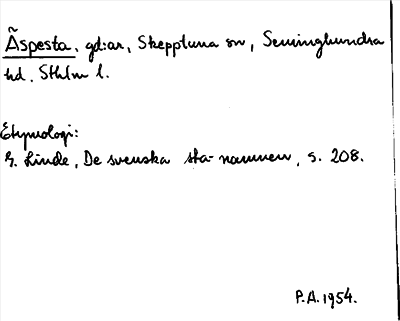 Ãspesta, gd:ar, Skepptuna sn, Seminghundra
hd. Sthlm l.
Etymologi:
G. Linde, De svenska sta-namnen, s. 208.
P.A. 1954.